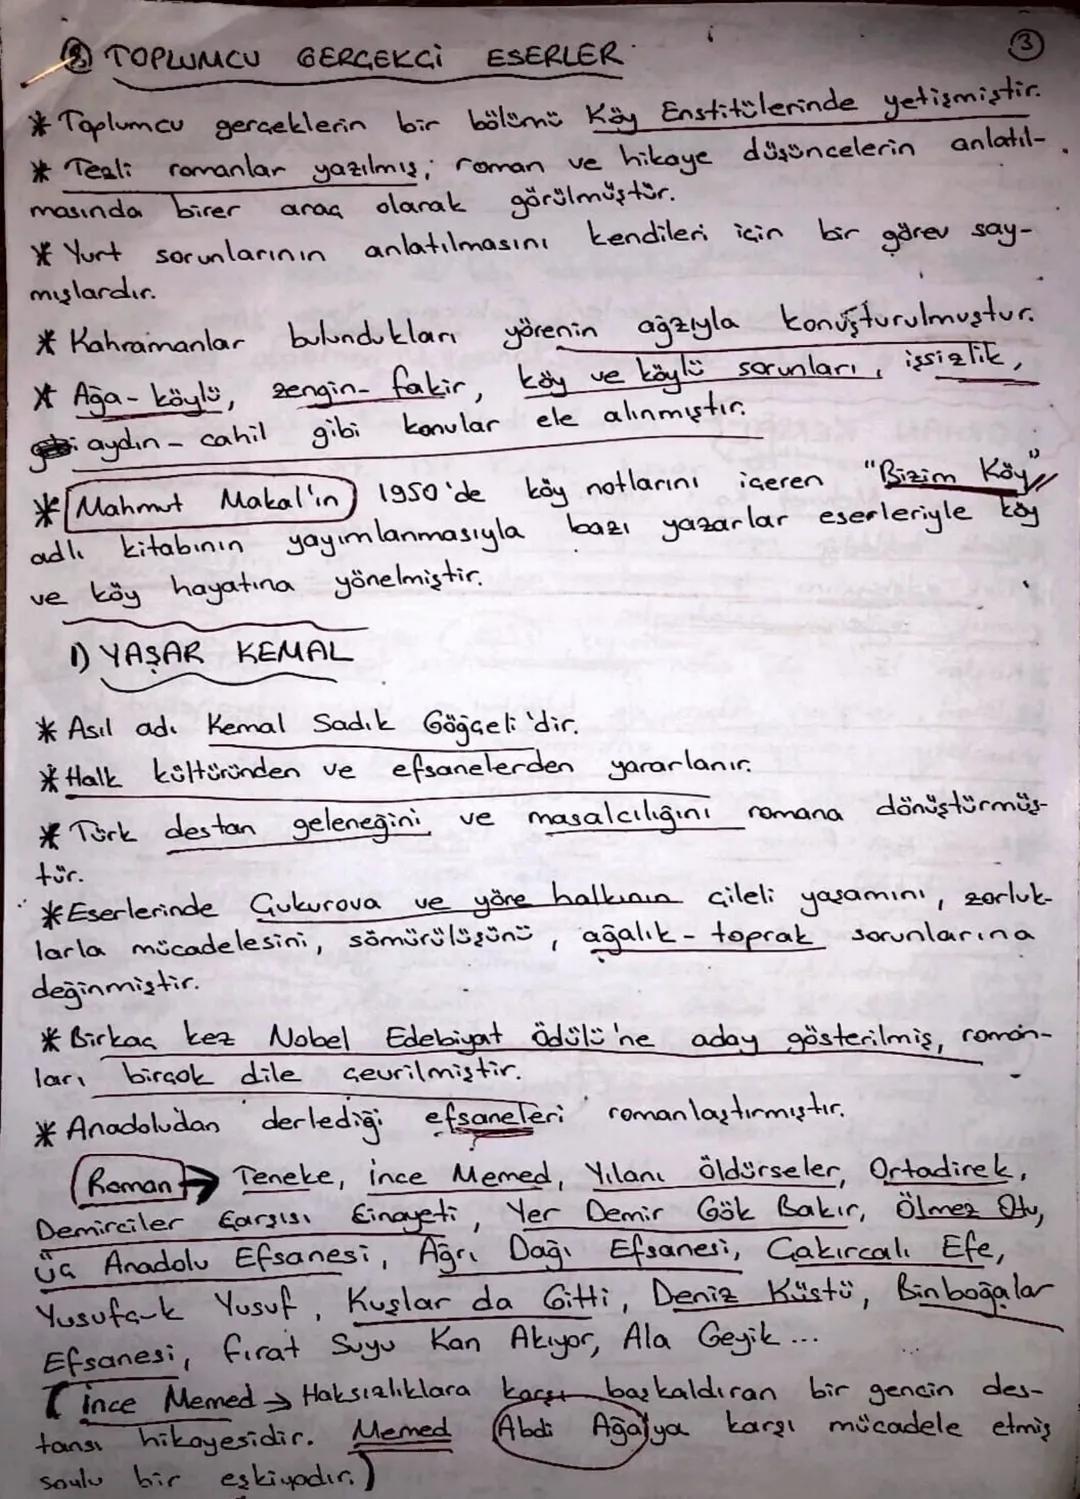 ③
⑧ TOPLUMCU GERÇEKÇİ ESERLER
* Toplumcu gerçeklerin bir bölümü Köy Enstitülerinde yetişmiştir.
* Tezli romanlar yazılmış; roman ve hikaye düşüncelerin anlatıl-
masında birer araç olarak görülmüştür.
* Yurt sorunlarının anlatılmasını kendileri için bir görev say-
mışlardır.
* Kahramanlar bulundukları yörenin ağzıyla konuşturulmuştur.
* Ağa-köylü, zengin-fakir, köy ve köylü sorunları, işsizlik,
aydın-cahil gibi konular ele alınmıştır.
* Mahmut Makal'ın 1950'de köy notlarını içeren "Bizim Köy"
adlı kitabının yayımlanmasıyla bazı yazarlar eserleriyle köy
ve köy hayatına yönelmiştir.
1) YAŞAR KEMAL
* Asıl adı Kemal Sadık Göğçeli'dir.
* Halk kültüründen ve efsanelerden yararlanır.
* Türk destan geleneğini ve masalcılığını romana dönüştürmüş-
tür.
* Eserlerinde Çukurova ve yöre halkının çileli yaşamını, zorluk-
larla mücadelesini, sömürülüşünü, ağalık-toprak sorunlarına
değinmiştir.
* Birkaç kez Nobel Edebiyat Ödülü'ne aday gösterilmiş, roman-
ları birçok dile çevrilmiştir.
* Anadoludan derlediği efsaneleri romanlaştırmıştır.
Roman → Teneke, İnce Memed, Yılanı Öldürseler, Ortadirek,
Demirciler Çarşısı Cinayeti, Yer Demir Gök Bakır, Ölmez Otu,
Üç Anadolu Efsanesi, Ağrı Dağı Efsanesi, Çakırcalı Efe,
Yusufçuk Yusuf, Kuşlar da Gitti, Deniz Küstü, Binboğalar
Efsanesi, Fırat Suyu Kan Akıyor, Ala Geyik...
(İnce Memed → Haksızlıklara karşı başkaldıran bir gencin des-
tansı hikayesidir. Memed Abdi Ağa'ya karşı mücadele etmiş
soylu bir eşkiyadır.)